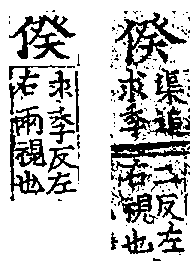 㑧
渠追
求季
二反左
右視也
㑧
求季反左
右兩視也